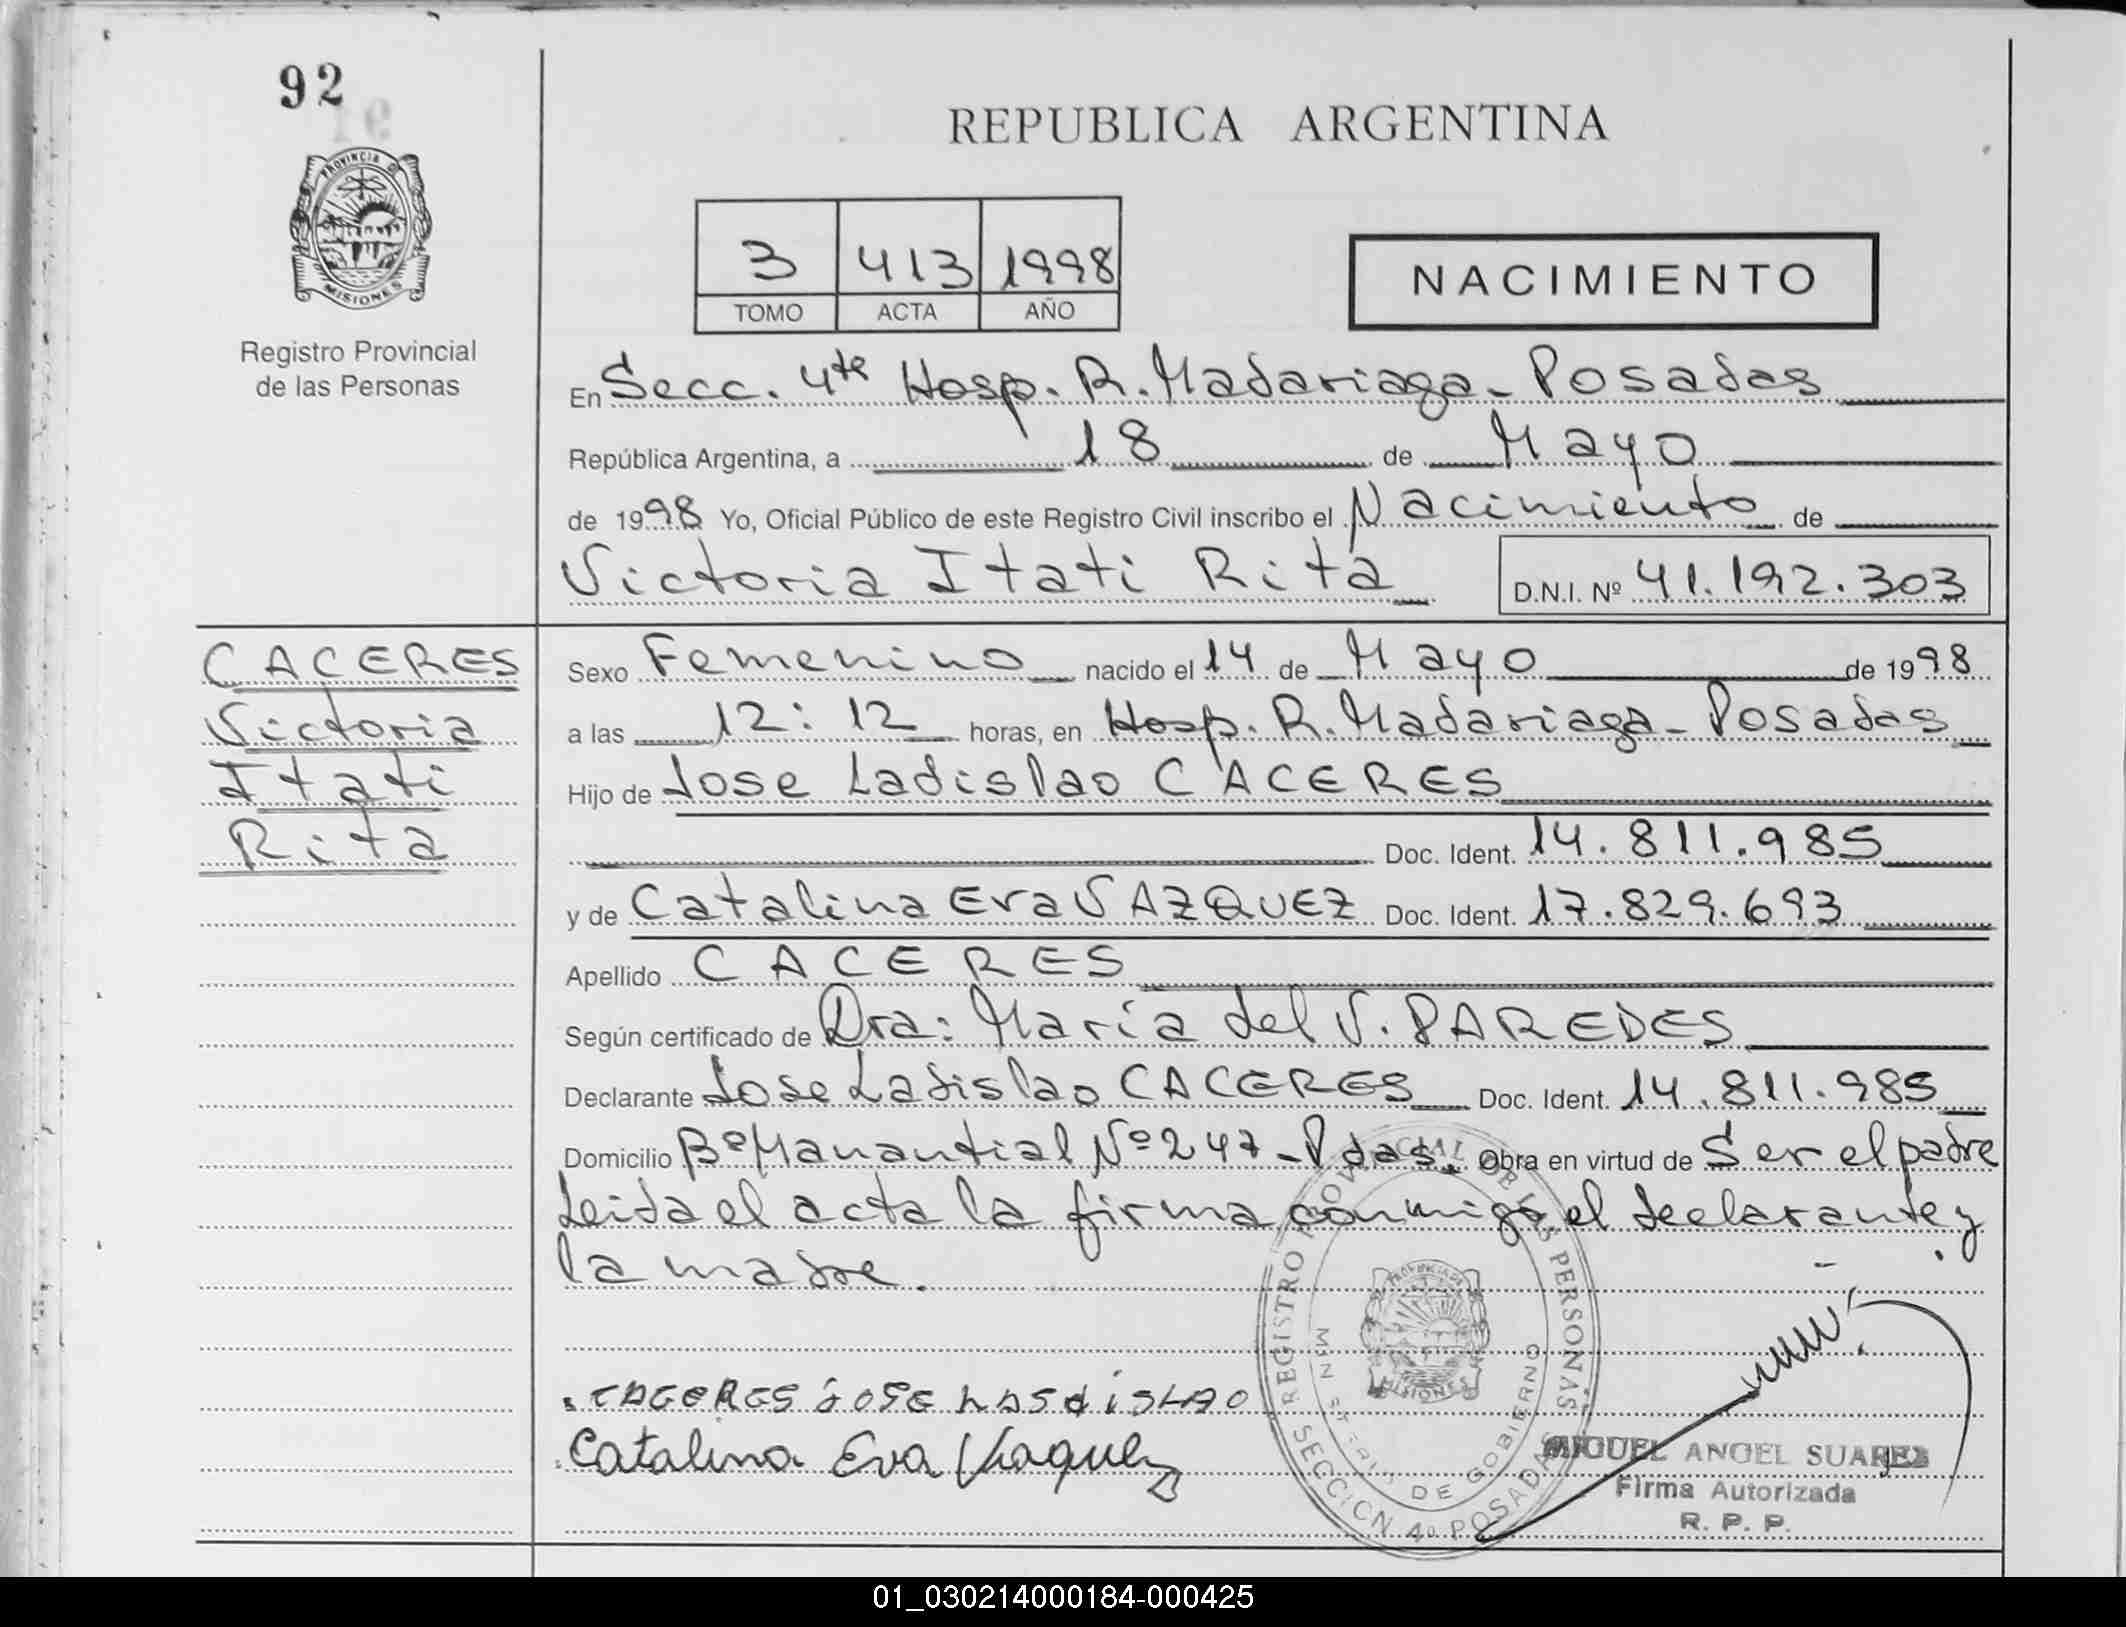 92
REPUBLICA ARGENTINA
PROVINCIA DE
MISIONES
Registro Provincial
de las Personas
3 413 1998
TOMO ACTA AÑO
NACIMIENTO
En Secc. 4ta Hosp. R. Madariaga - Posadas
República Argentina, a 18 de Mayo
de 1998 Yo, Oficial Público de este Registro Civil inscribo el Nacimiento de
Victoria Itati Rita
D.N.I. Nº 41.192.303
CACERES
Victoria
Itati
Rita
Sexo Femenino nacido el 14 de Mayo de 1998
a las 12:12 horas, en Hosp. R. Madariaga - Posadas
Hijo de Jose Ladislao CACERES
Doc. Ident. 14.811.985
y de Catalina Eva VAZQUEZ Doc. Ident. 17.829.693
Apellido CACERES
Según certificado de Dra: María del V. PAREDES
Declarante Jose Ladislao CACERES Doc. Ident. 14.811.985
Domicilio Bº Manantial Nº 247 - Pdas. Obra en virtud de Ser el padre
Leida el acta la firma conmigo el declarante y
la madre.
CACERES JOSE LASDISLAO
Catalina Eva Vazquez
REGISTRO PROVINCIAL DE LAS PERSONAS
MINISTERIO DE GOBIERNO
SECCION 4º POSADAS
MIGUEL ANGEL SUAREZ
Firma Autorizada
R. P. P.
01_030214000184-000425